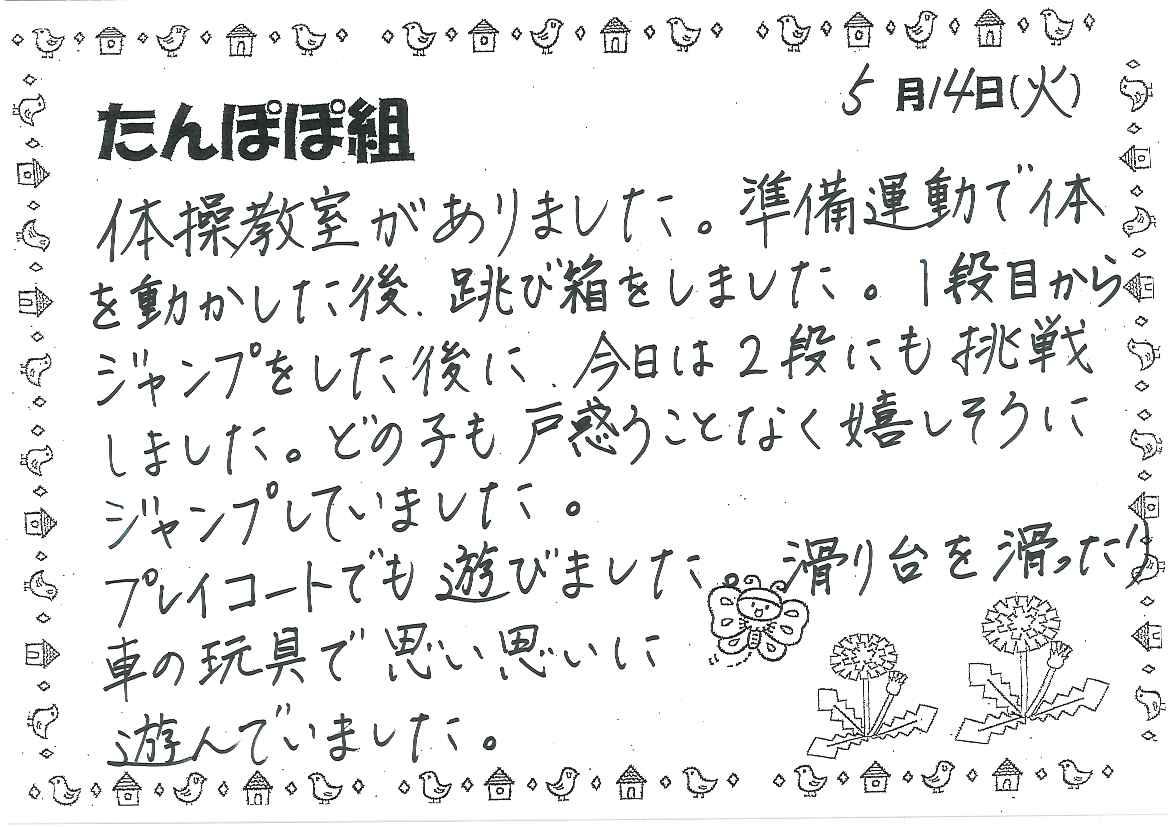 5月14日(火)
たんぽぽ組
体操教室がありました。準備運動で体
を動かした後、跳び箱をしました。1段目から
ジャンプをした後に、今日は2段にも挑戦
しました。どの子も戸惑うことなく嬉しそうに
ジャンプしていました。
プレイコートでも遊びました 滑り台を滑ったり
車の玩具で思い思いに
遊んでいました。